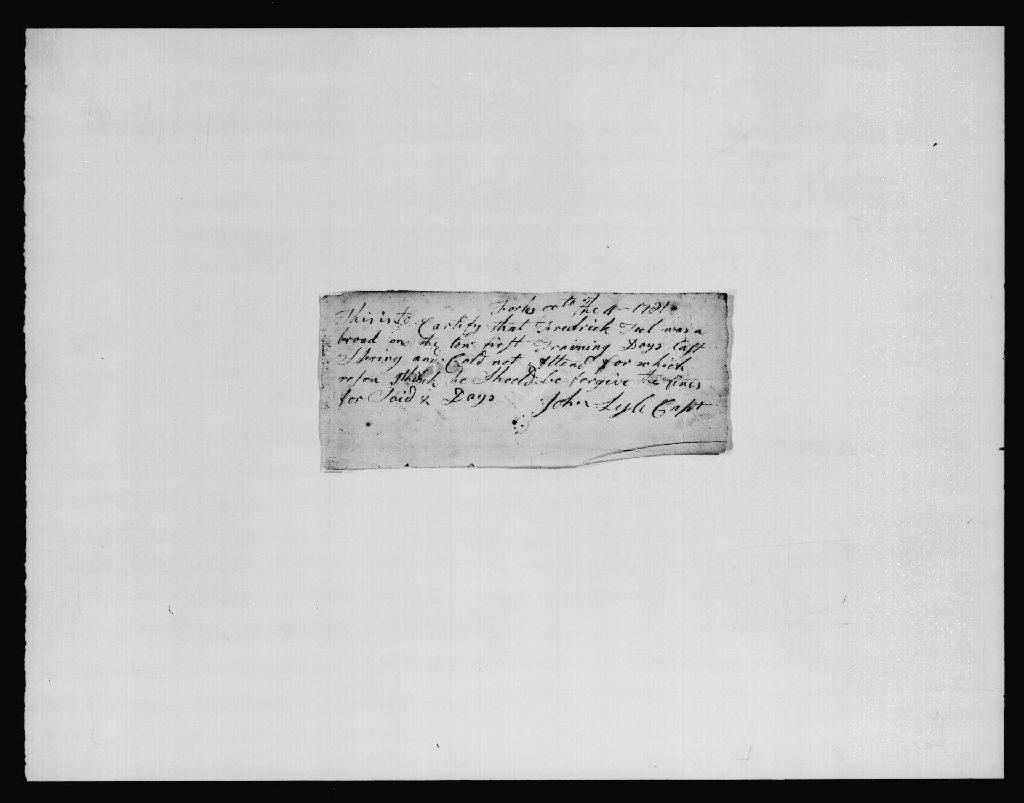 Forks octo the 4 - 1781
This is to Certify that Fredrick Teel was a
broad on the tow first Training Days last
Spring and Cold not Attend for which
reson I think he Shoold be forgive the fines
for Said 2 Days John Lyle Capt